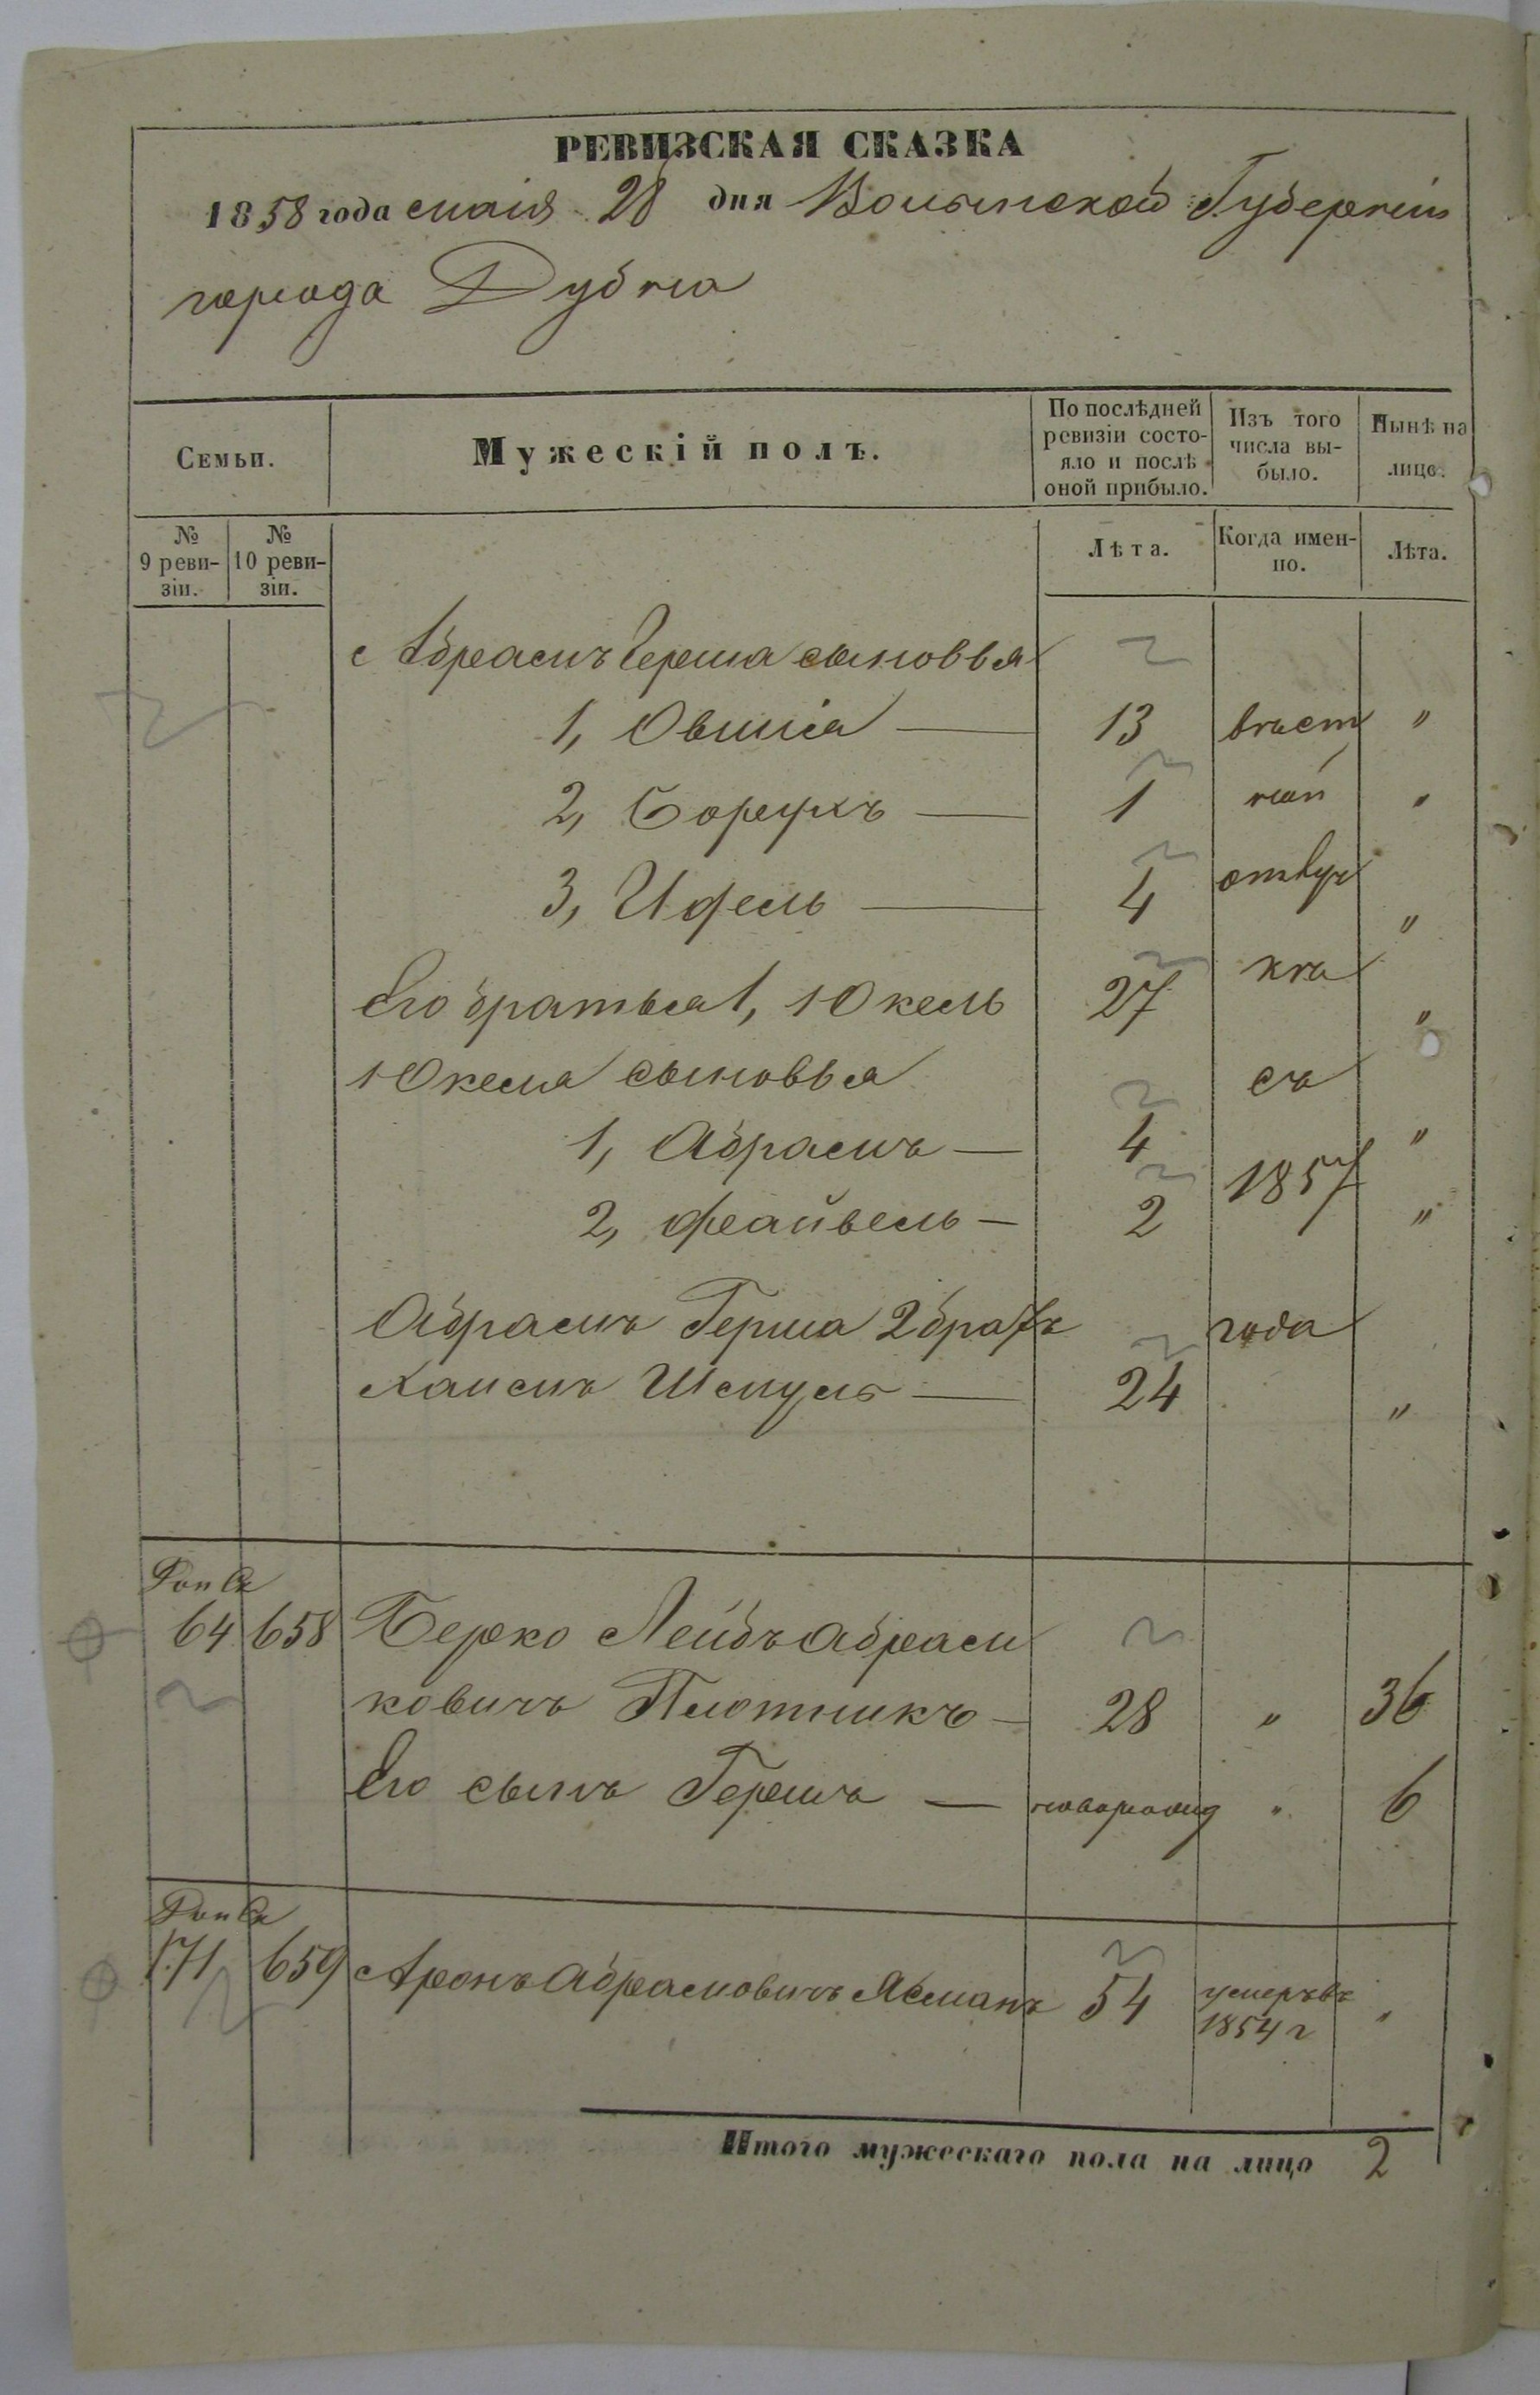 РЕВИЗСКАЯ СКАЗКА
1858 года маія 28 дня Волынской Губерніи
города Дубна
Семьи.
Мужескій полъ.
По послѣдней ревизіи состо-
яло и послѣ оной прибыло.
Изъ того числа вы-
было.
Нынѣ на лицо.
№ 9 реви-
зіи.
№ 10 реви-
зіи.
Лѣта.
Когда имен-
но.
Лѣта.
Абрамъ Герша сыновья
1, Овшіа — 13 "
2, Борухъ — 1 "
3, Иосель — 4 "
отлуч
кѣ
Его братья 1, Юкель 27 "
Юкеля сыновья
съ
1, Абрамъ — 4 "
1857
2, Файвель — 2 "
Абрамъ Герша 2 братъ
года
Хаимъ Шмуль — 24 "
64 658 Берко Лейбъ Абрам
ковичъ Плотникъ — 28 " 36
Его сынъ Гершъ — новорожд " 6
171 659 Аронъ Абрамовичъ Ясманъ 54 умеръ въ "
1854 г
Итого мужескаго пола на лицо 2